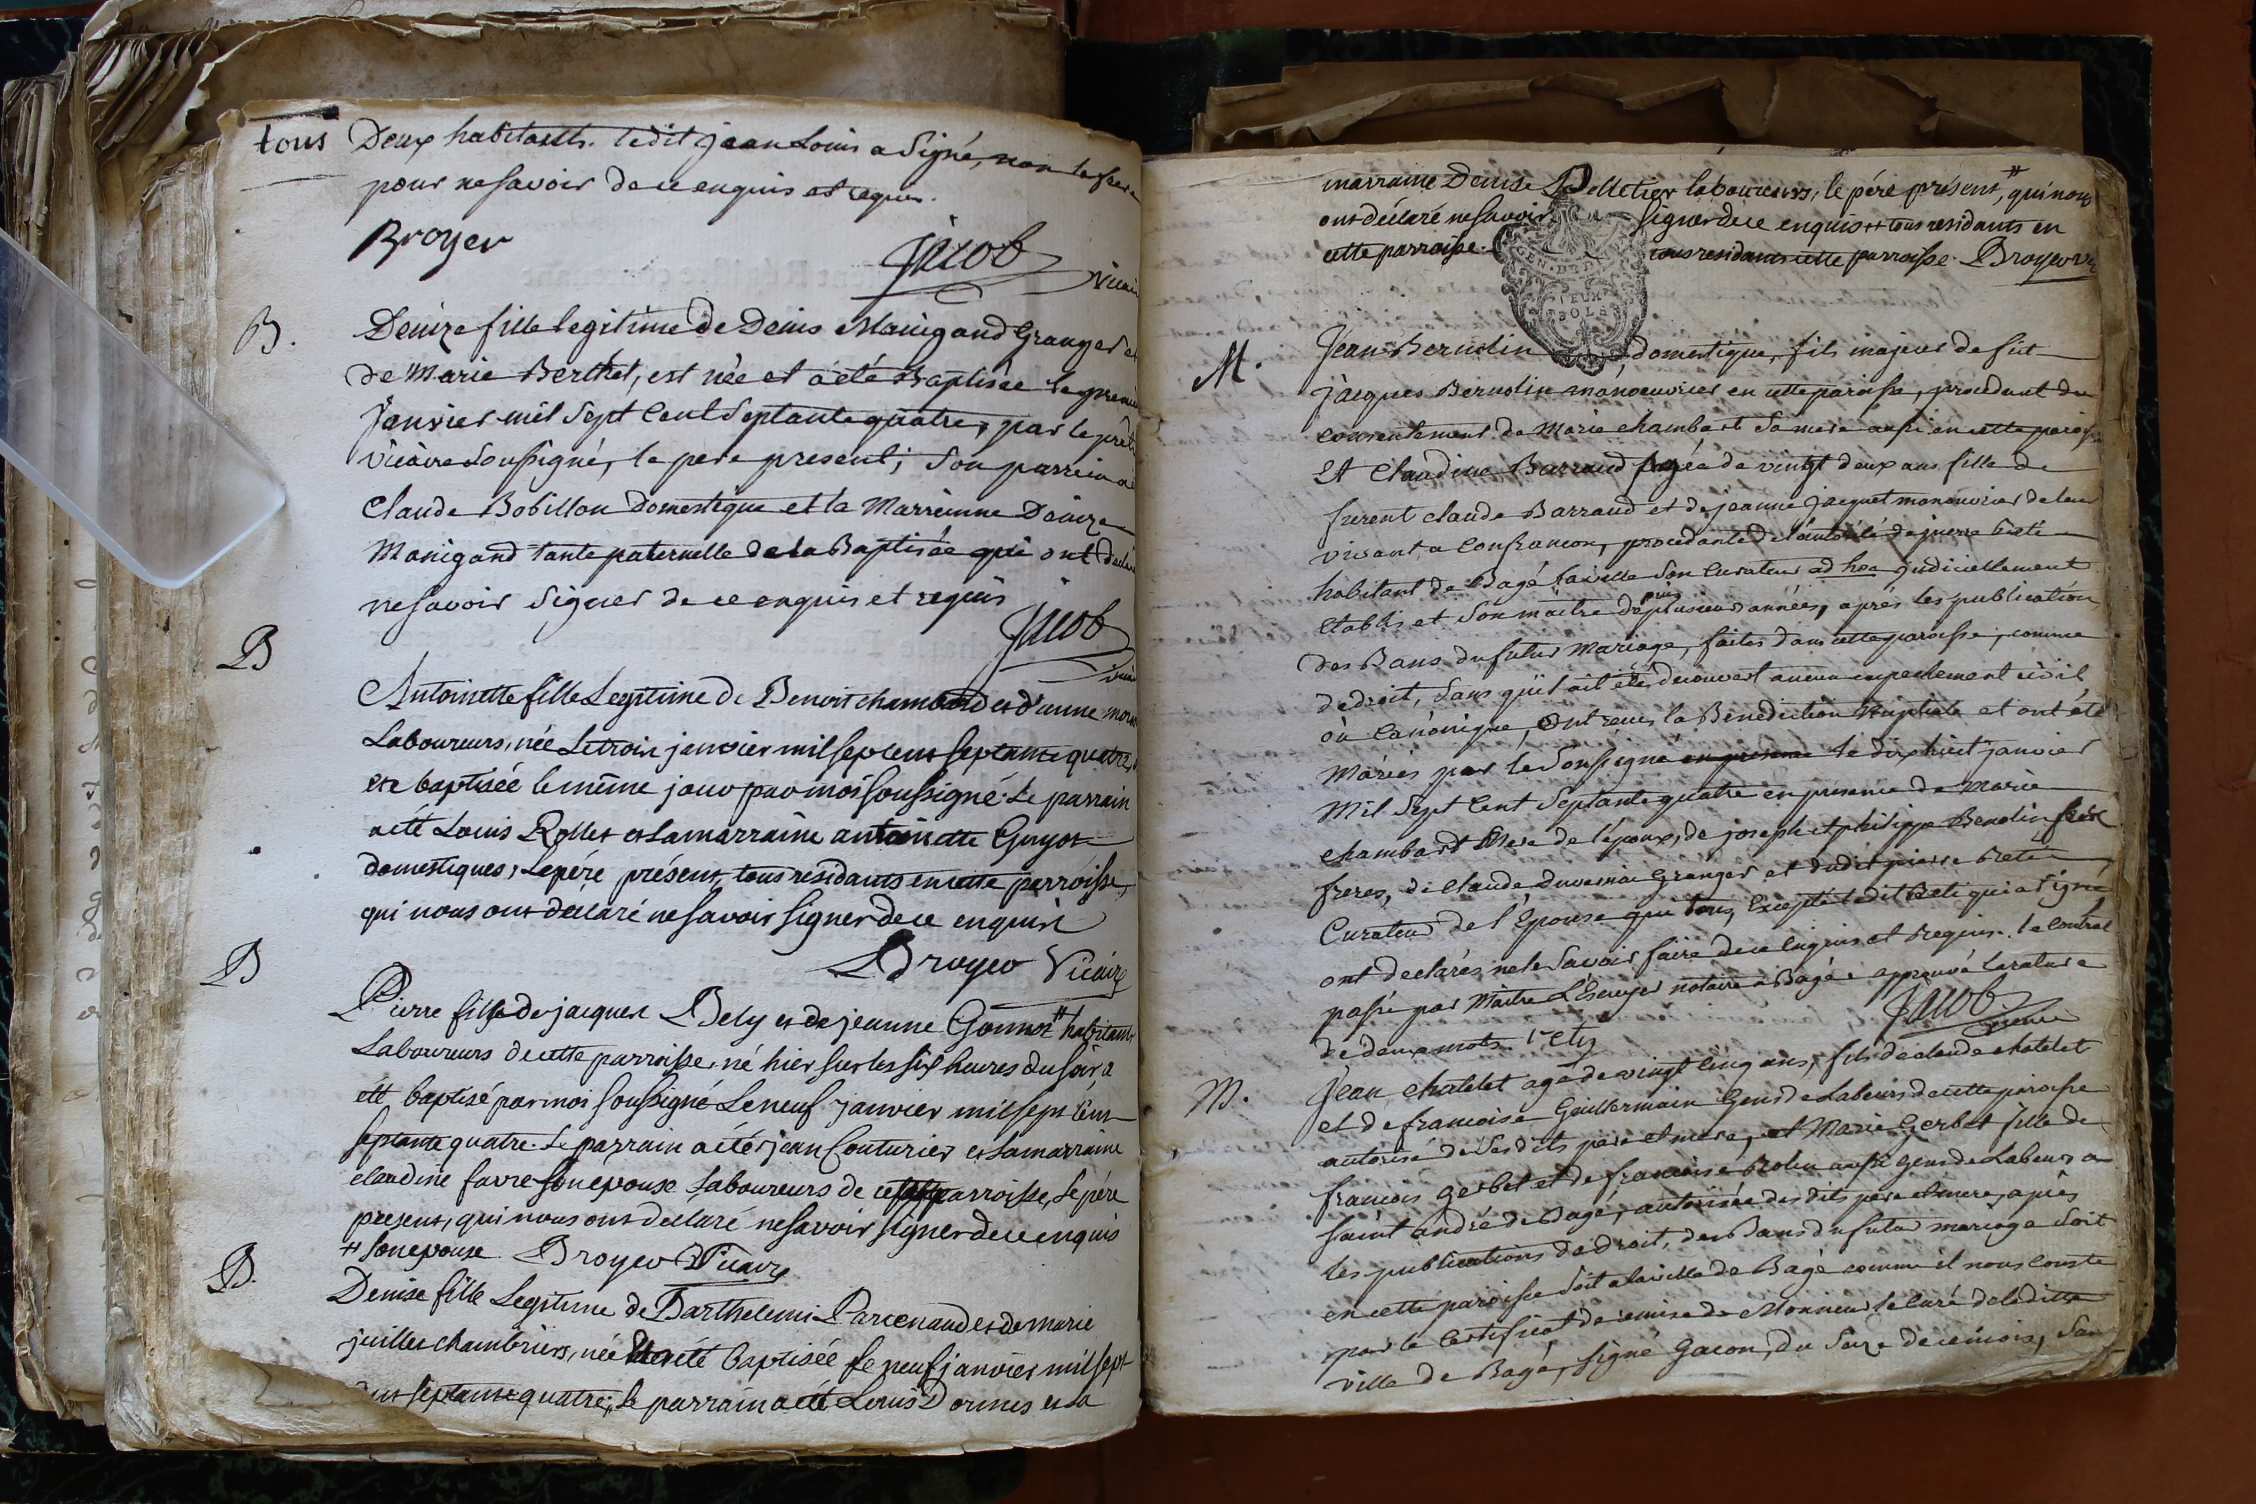 tous Deux habitants. ledit jean Louis a Signé, non le pere
pour ne savoir de ce enquis et requis.
Broyer
Jacob
vicaire
B.
Denize fille legitime de Denis Manigand Granger et
de Marie Berthet, est née et a été Baptisée le premier
janvier mil Sept Cent Septante quatre, par le prêtre
vicaire Soussigné, le pere present; Son parrein a été
Claude Bobillon Domestique et la Marreinne Denize
Manigand tante paternelle de la Baptisée qui ont déclaré
ne savoir Signer de ce enquis et requis
Jacob
vicaire
B
Antoinette fille Legitime de Benoit chambard et d'anne
Laboureurs, née Le trois janvier mil sept cent septante quatre,
ete baptisée le même jour par moi soussigné. Le parrain
a eté Louis Rollet et La marraine antoinette Guyot
domestiques, Le pére présent, tous residants en cette parroisse,
qui nous ont declaré ne savoir signer de ce enquis
Broyer Vicaire
B
Pierre fils de jacques Bely et de jeanne Gonnot # habitants
Laboureurs de cette parroisse, né hier sur les six heures du soir, a
eté baptisé par moi soussigné Le neuf janvier mil sept cent
septante quatre. Le parrain a été jean Couturier et La marraine
claudine favre son epouse Laboureurs de cette parroisse, Le pére
present, qui nous ont declaré ne savoir signer de ce enquis
# son epouse Broyer Vicaire
B.
Denise fille Legitime de Barthelemi Parcenaud et de marie
juillet chambriers, née et eté baptisée Le neuf janvier mil sept
cent septante quatre, Le parrain a eté Louis Dormes et La
marraine Denise Pelletier laboureurs, le pére présent, # qui nous
ont déclaré ne savoir signer de ce enquis # tous residants en
cette parroisse. tous residants cette parroisse. Broyer
GEN. DE
DEUX
SOLS
M.
Jean Bernolin domestique, fils majeur de fut
jacques Bernolin manoeuvrier en cette paroisse, procedant du
consentement de Marie chambard Sa mere aussi en cette paroisse
Et Claudine Barraud agée de vingt deux ans fille de
furent Claude Barraud et de jeanne jacquet manouvriers de leur
vivant a Confrancon, procedante de l'autorité de pierre Beté
habitant de Bagé la ville Son Curateur ad hoc judiciellement
etablis et Son maitre depuis plusieurs années, aprés les publication
des Bans du futur Mariage, faites dans cette paroisse, comme
de droit, Sans qu'il ait été decouvert aucun empechement civil
où Canonique, Ont reçus la Benediction Nuptiale et ont été
Mariés par le Soussigné en presence le dixhuit janvier
Mil Sept Cent Septante quatre en présence de Marie
Chambard Mere de l'époux, de joseph et philippe Benolin
freres, de Claude Duvernai Granger et dudit pierre Beté
Curateur de l'Épouse qui tous, Excepté ledit Beté qui a Signé
ont declarés ne le Savoir faire de ce Enquis et Requis. le Contrat
passé par Maitre L'Écuyer notaire a Bagé. approuvé la rature
de deux mots.
Jacob
vicaire
M.
Jean Chatelet agé de vingt Cinq ans, fils de claude chatelet
et de francoise Guillermain Gens de Labeurs de cette paroisse
autorisé de Ses dits pere et mere, et Marie Gerbet fille de
francois Gerbet et de francoise Rolin aussi gens de Labeurs a
saint andré de Bagé, autorisée des dits pere et mere, aprés
les publications de droit, des Bans du futur mariage Soit
en cette paroisse Soit a la ville de Bagé comme il nous Conste
par le Certificat de remise de Monsieur le Curé de ladite
ville de Bagé, Signé Gacon, du Seize de ce mois, San